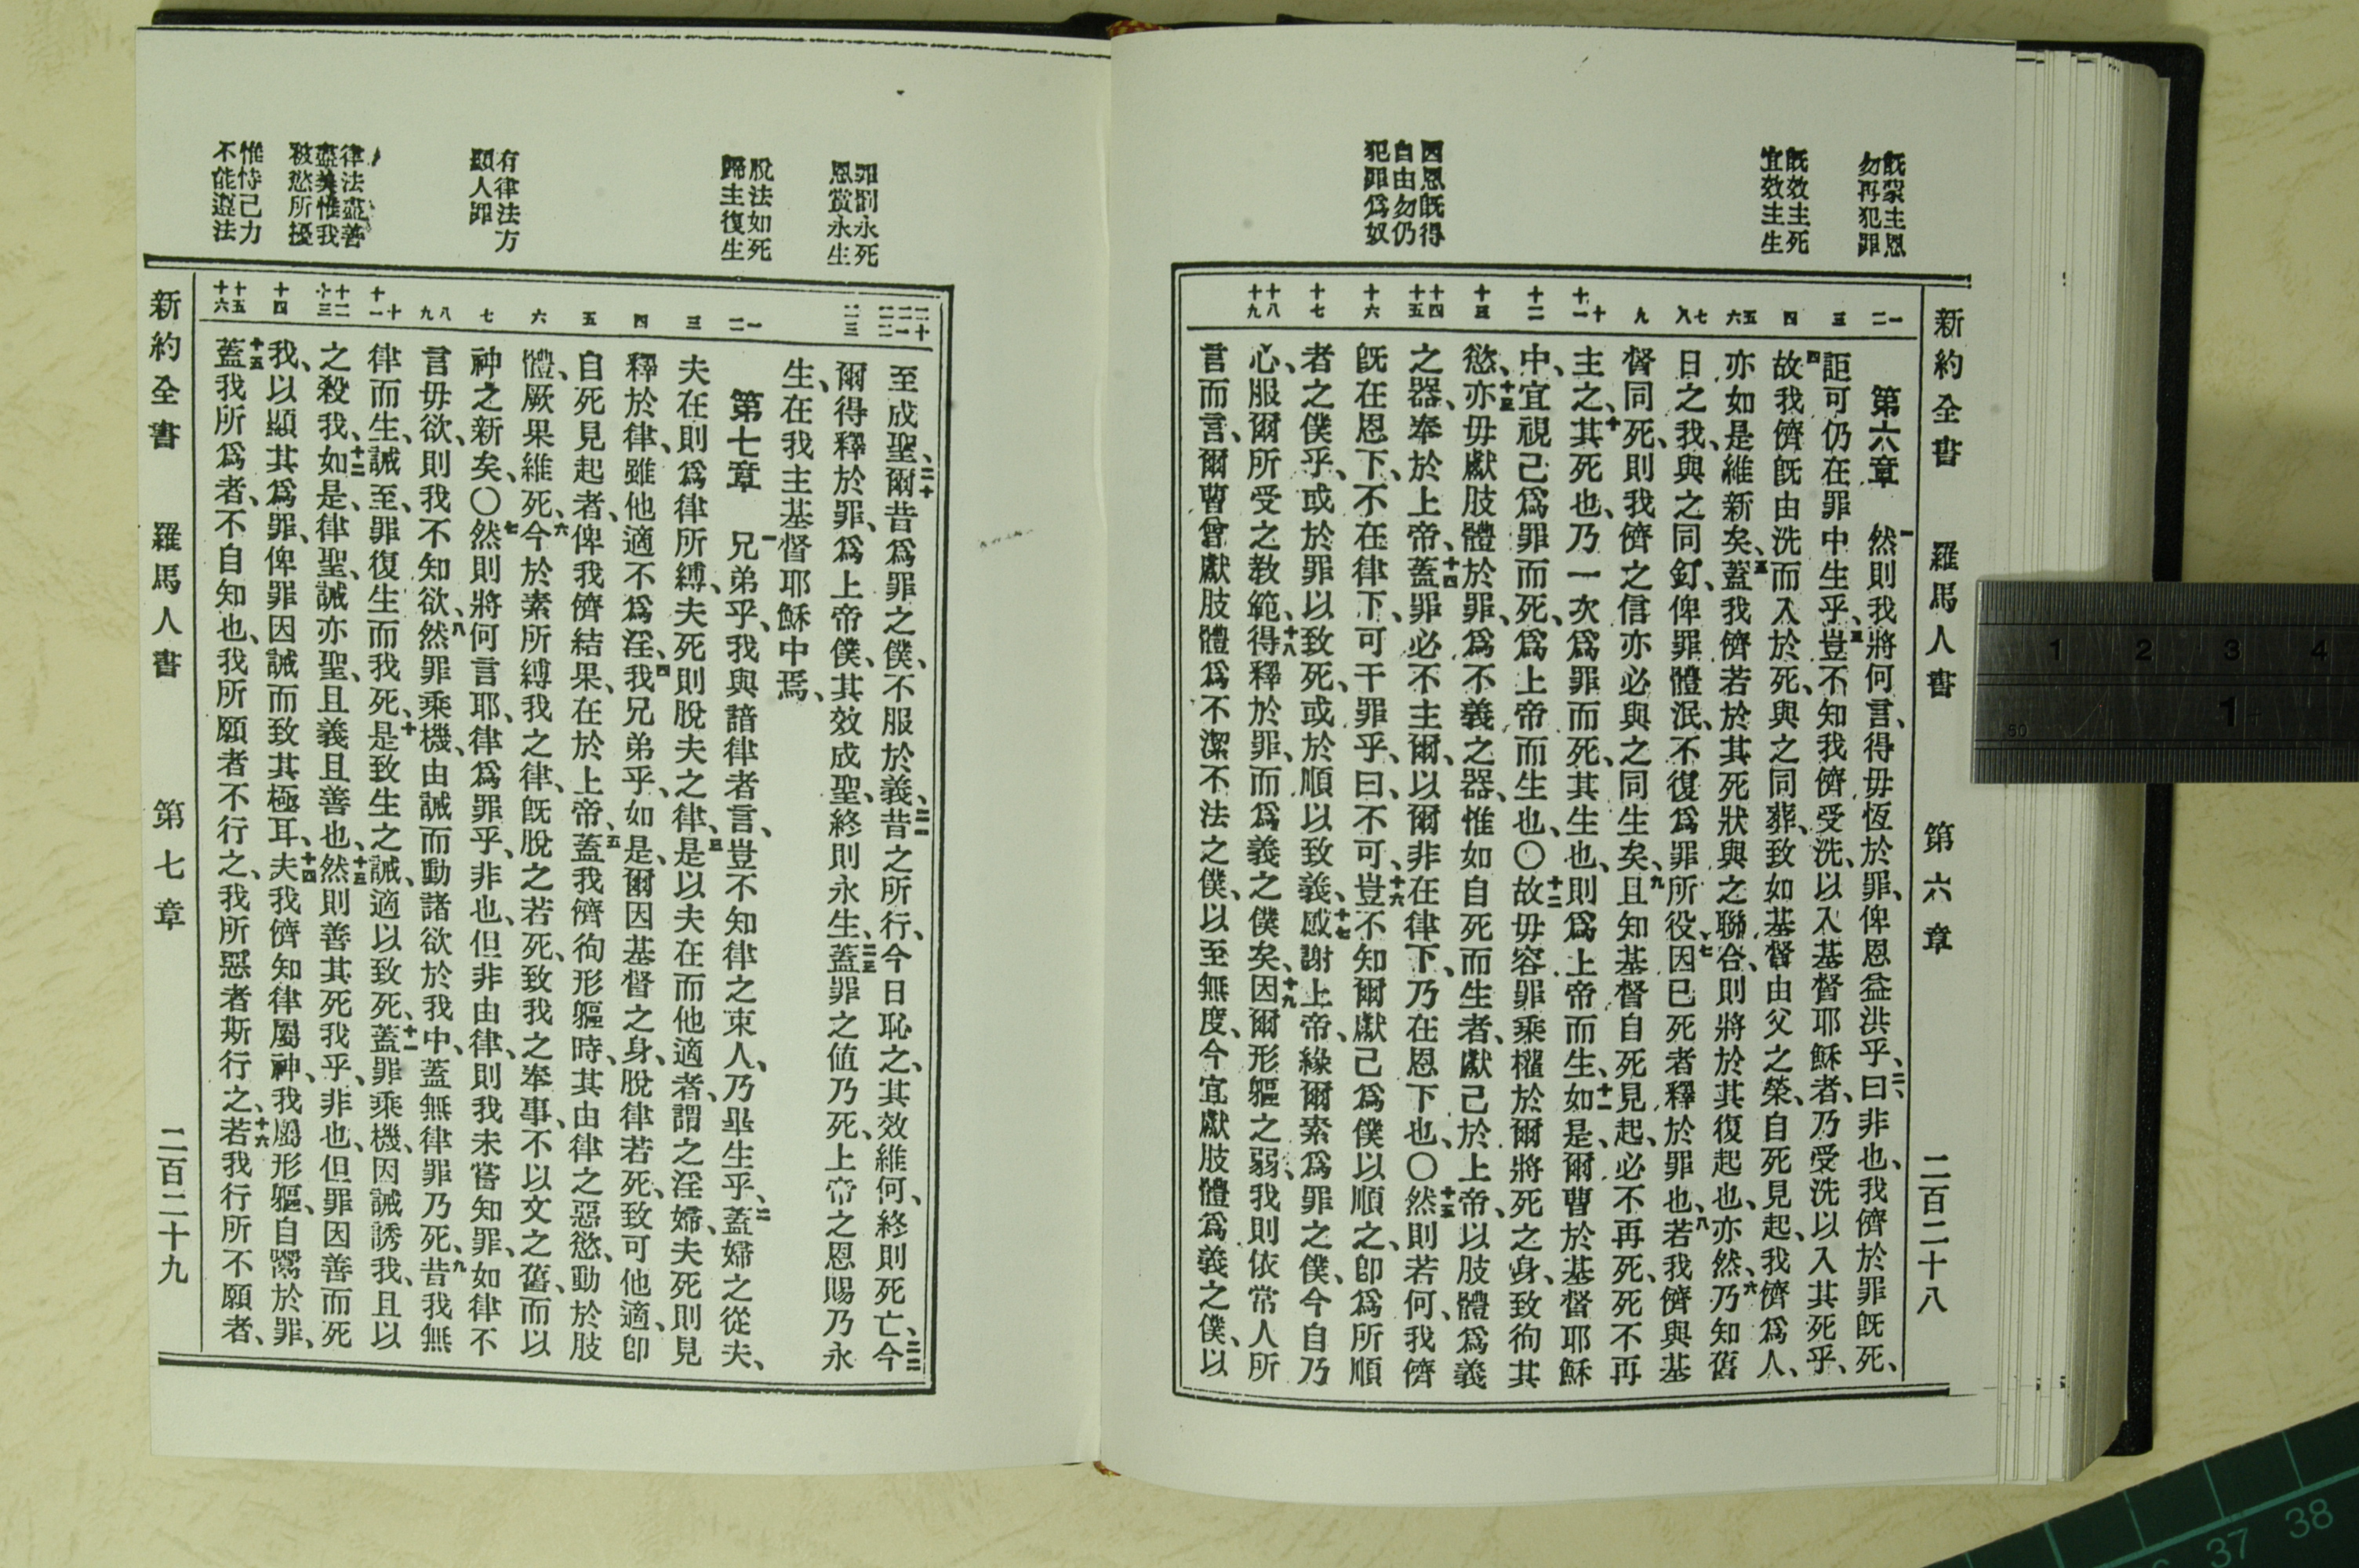 新約全書 羅馬人書 第六章 二百二十八
既蒙主恩
勿再犯罪
既效主死
宜效主生
因恩既得
自由勿仍
犯罪爲奴
一 二 三 四 五 六 七 八 九 十 十一 十二 十三 十四 十五 十六 十七 十八 十九
第六章 一然則我將何言、得毋恆於罪、俾恩益洪乎、二曰、非也、我儕於罪既死、
詎可仍在罪中生乎、三豈不知我儕受洗、以入基督耶穌者、乃受洗以入其死乎、
四故我儕既由洗而入於死、與之同葬、致如基督由父之榮、自死見起、我儕爲人、
亦如是維新矣、五蓋我儕若於其死狀與之聯合、則將於其復起也、亦然、六乃知舊
日之我、與之同釘、俾罪體泯、不復爲罪所役、七因已死者釋於罪也、八若我儕與基
督同死、則我儕之信亦必與之同生矣、九且知基督自死見起、必不再死、死不再
主之、十其死也、乃一次爲罪而死、其生也、則爲上帝而生、十一如是、爾曹於基督耶穌
中、宜視己爲罪而死、爲上帝而生也、〇十二故毋容罪乘權於爾將死之身、致徇其
慾、十三亦毋獻肢體於罪、爲不義之器、惟如自死而生者、獻己於上帝、以肢體爲義
之器、奉於上帝、十四蓋罪必不主爾、以爾非在律下、乃在恩下也、〇十五然則若何、我儕
既在恩下、不在律下、可干罪乎、曰、不可、十六豈不知爾獻己爲僕以順之、卽爲所順
者之僕乎、或於罪以致死、或於順以致義、十七感謝上帝、緣爾素爲罪之僕、今自乃
心、服爾所受之教範、十八得釋於罪、而爲義之僕矣、十九因爾形軀之弱、我則依常人所
言而言、爾曹曾獻肢體爲不潔不法之僕、以至無度、今宜獻肢體爲義之僕、以
罪罰永死
恩賞永生
脫法如死
歸主復生
有律法方
顯人罪
律法盡善
盡美惟我
被慾所擾
惟恃己力
不能遵法
二十 二一 二二 二三 一 二 三 四 五 六 七 八 九 十 十一 十二 十三 十四 十五 十六
至成聖、二十爾昔爲罪之僕、不服於義、二一昔之所行、今日恥之、其效維何、終則死亡、二二今
爾得釋於罪、爲上帝僕、其效成聖、終則永生、二三蓋罪之値乃死、上帝之恩賜乃永
生、在我主基督耶穌中焉、
第七章 一兄弟乎、我與諳律者言、豈不知律之束人、乃畢生乎、二蓋婦之從夫、
夫在則爲律所縛、夫死則脫夫之律、三是以夫在而他適者、謂之淫婦、夫死則見
釋於律、雖他適不爲淫、四我兄弟乎、如是、爾因基督之身、脫律若死、致可他適、卽
自死見起者、俾我儕結果、在於上帝、五蓋我儕徇形軀時、其由律之惡慾、動於肢
體、厥果維死、六今於素所縛我之律、既脫之若死、致我之奉事、不以文之舊、而以
神之新矣、〇七然則將何言耶、律爲罪乎、非也、但非由律、則我未嘗知罪、如律不
言毋欲、則我不知欲、八然罪乘機、由誡而動諸欲於我中、蓋無律罪乃死、九昔我無
律而生、誡至、罪復生而我死、十是致生之誡、適以致死、十一蓋罪乘機、因誡誘我、且以
之殺我、十二如是、律聖、誡亦聖、且義且善也、十三然則善其死我乎、非也、但罪因善而死
我、以顯其爲罪、俾罪因誡而致其極耳、十四夫我儕知律屬神、我屬形軀、自鬻於罪、
十五蓋我所爲者、不自知也、我所願者不行之、我所惡者斯行之、十六若我行所不願者、
新約全書 羅馬人書 第七章 二百二十九
1 2 3 4
1
50
37 38